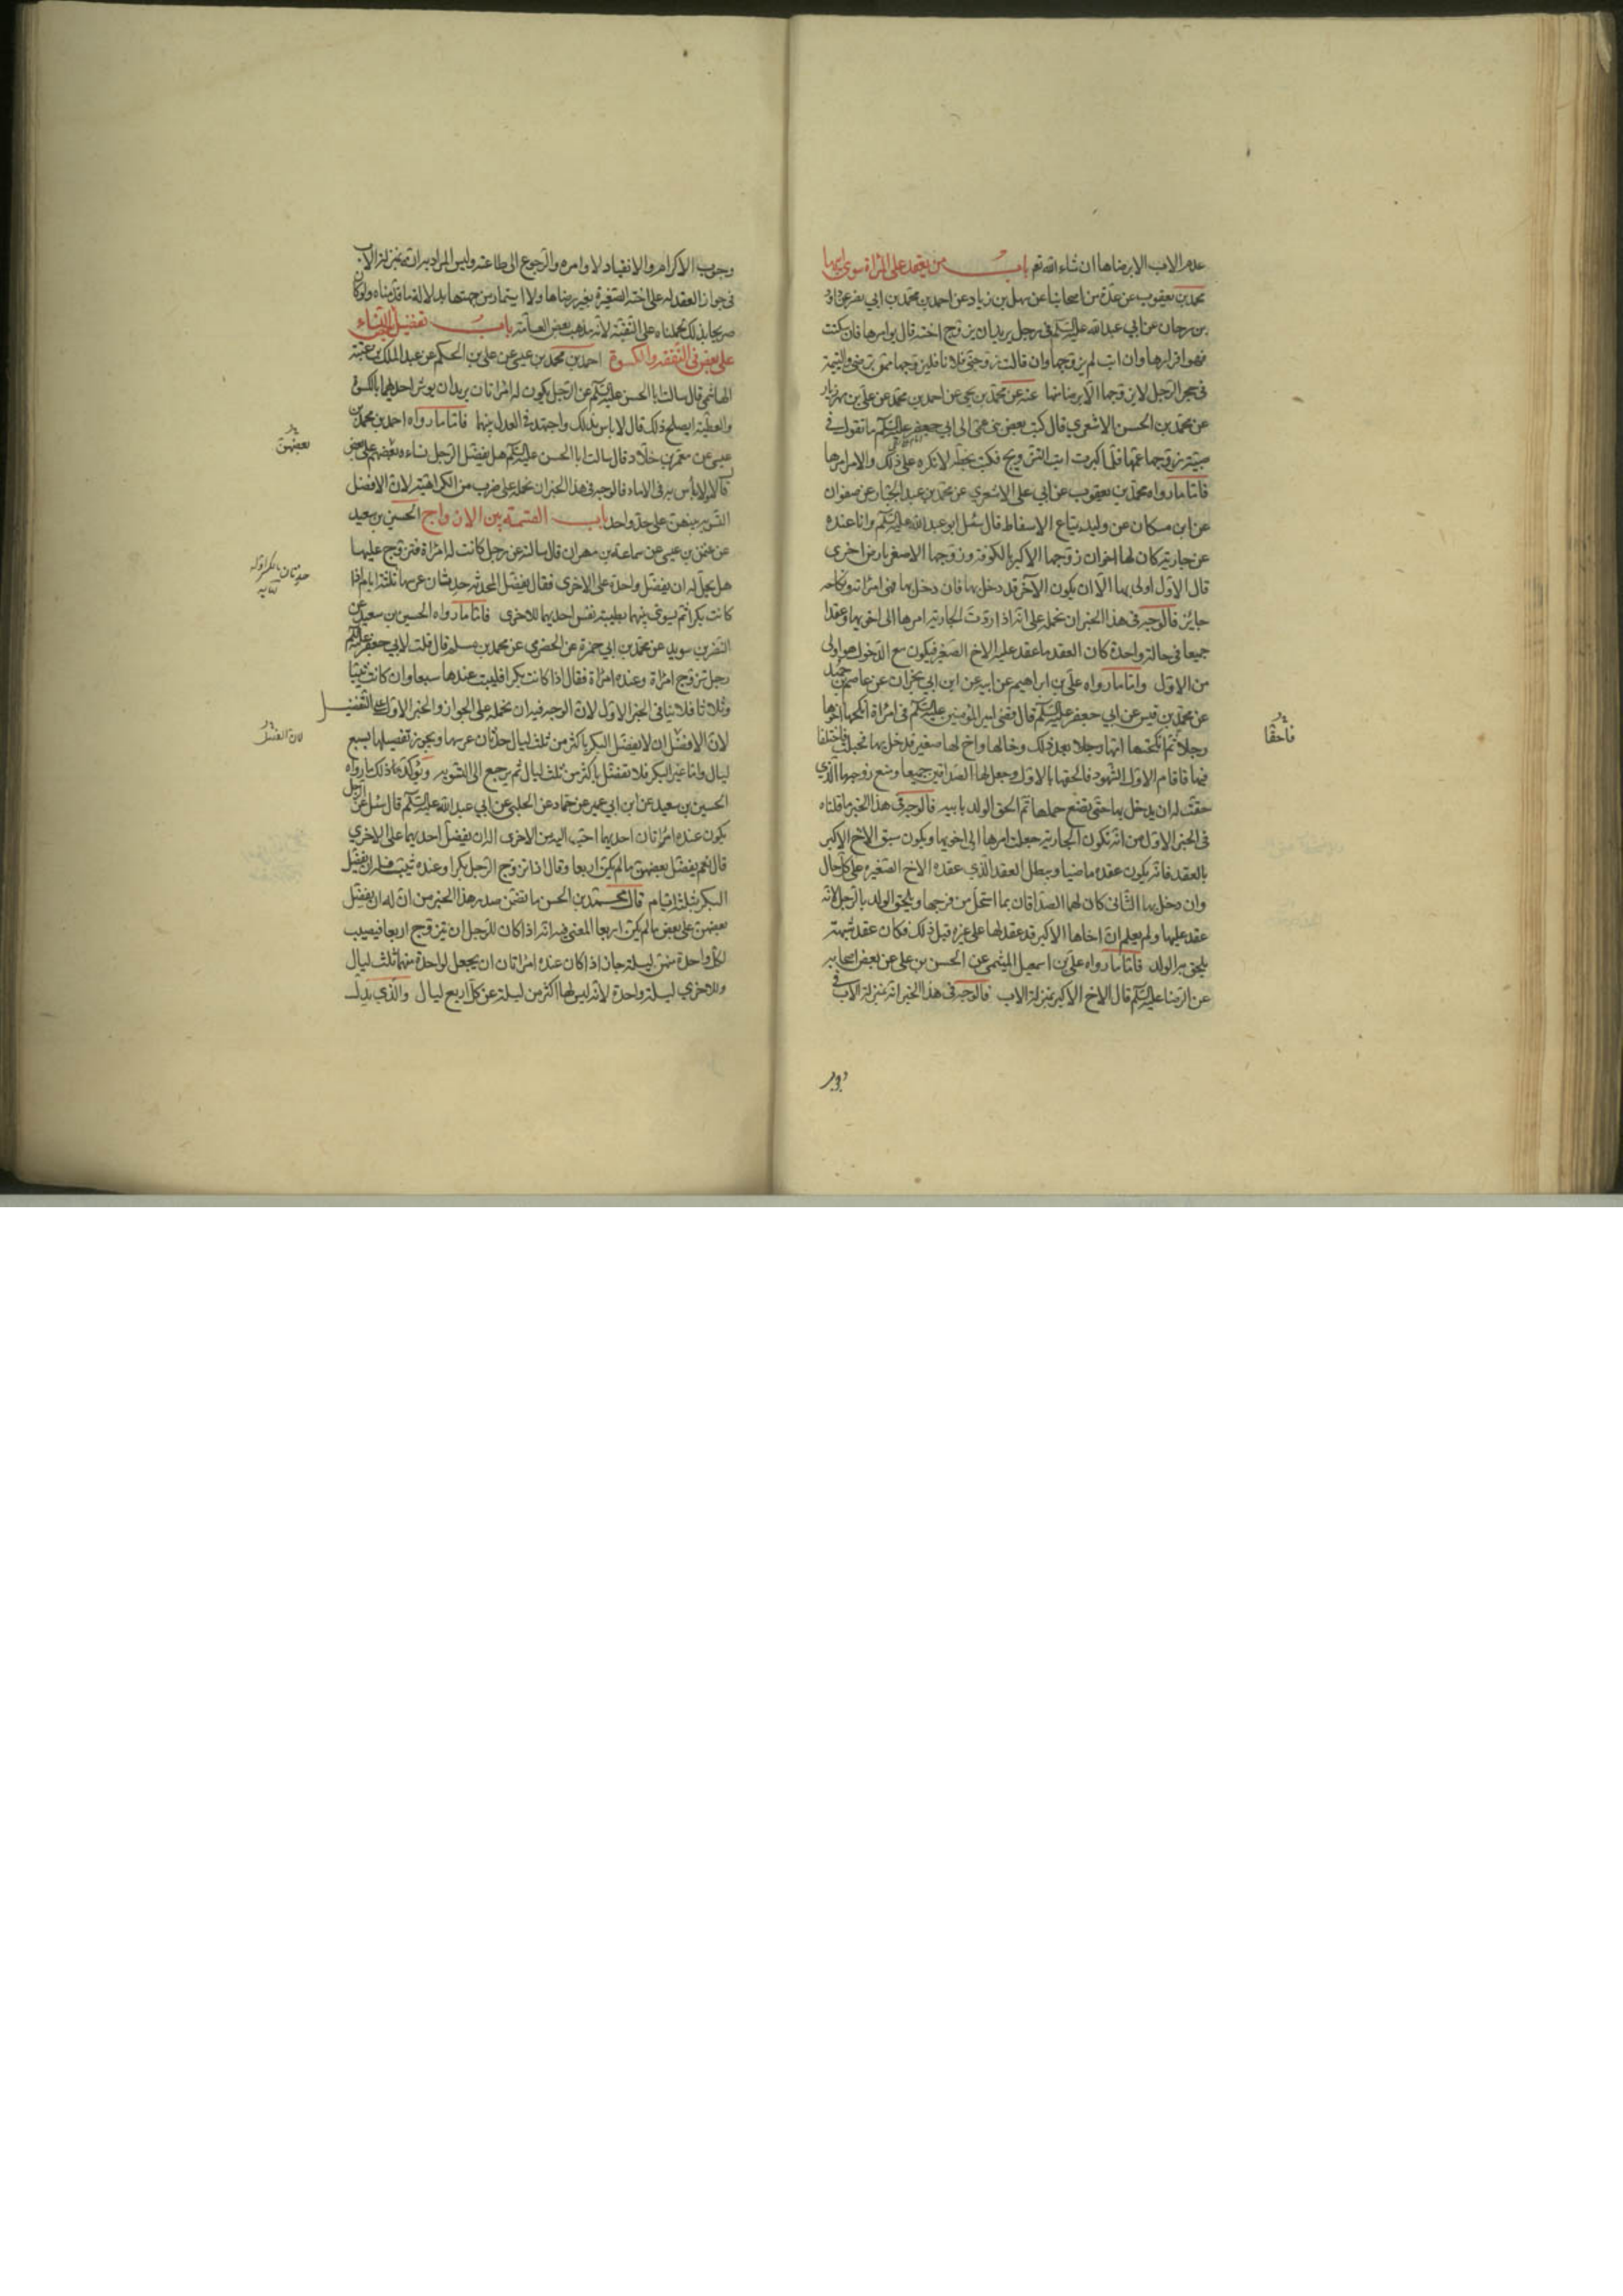 عدم الاب الا برضاها ان شاء الله تعم باب من يعقد على المرأة سوى ابيها
محمد بن يعقوب عن عدة من اصحابنا عن سهل بن زياد عن احمد بن محمد بن ابي نصر عن داود
بن سرحان عن ابي عبدالله عليه السلم في رجل يريد ان يزوج اخته قال يوامرها فان سكتت
فهو اقرارها وان ابت لم يزوجها وان قالت زوجنى فلانا فليزوجها ممن ترضى واليتيمة
في حجر الرجل لا يزوجها الا برضاها عنه عن محمد بن يحيى عن احمد بن محمد عن علي بن مهزيار
عن محمد بن الحسن الاشعري قال كتب بعض بني عمى الى ابي جعفر عليه السلم ما تقول في
صبية زوجها عمها فلما كبرت ابت التزويج فكتب بخطه لا تكره على ذلك والامر امرها
فاما ما رواه محمد بن يعقوب عن ابي علي الاشعري عن محمد بن عبد الجبار عن صفوان
عن ابن مسكان عن وليد بياع الاسفاط قال سئل ابو عبد الله عليه السلم وانا عنده
عن جارية كان لها اخوان زوجها الاكبر بالكوفة وزوجها الاصغر بارض اخرى
قال الاول اولى بها الا ان يكون الآخر قد دخل بها فان دخل بها فهي امراته ونكاحه
جايز فالوجه في هذا الخبر ان نحمله على انه اذا ردت الجارية امرها الى اخويها وعقدا
جميعا في حالة واحدة كان العقد ما عقد عليه الاخ الصغير فيكون مع الدخول هو اولى
من الاول واما ما رواه علي بن ابراهيم عن ابيه عن ابن ابي نجران عن عاصم بن حميد
عن محمد بن قيس عن ابي جعفر عليه السلم قال قضى امير المؤمنين عليه السلم في امراة انكحها اخوها
رجلا ثم انكحتها امها رجلا بعد ذلك وخالها واخ لها صغير فدخل بها فحبلت فاختلفا
فيها فاقام الاول الشهود فالحقها بالاول وجعل لها الصداقين جميعا ومنع زوجها الذي
حقت له ان يدخل بها حتى تضع حملها ثم الحق الولد بابيه فالوجه في هذا الخبر ما قلناه
في الخبر الاول من انه تكون الجارية جعلت امرها الى اخويها ويكون سبق الاخ الاكبر
بالعقد فانه يكون عقده ماضيا ويبطل العقد الذي عقده الاخ الصغير على كل حال
وان دخل بها الثاني كان لها الصداقان بما استحل من فرجها ويلحق الولد بالرجل لانه
عقد عليها ولم يعلم ان اخاها الاكبر قد عقد لها على غيره قبل ذلك فكان عقد شبهة
يلحق به الولد فاما ما رواه علي بن اسمعيل الميثمي عن الحسن بن علي عن بعض اصحابه
عن الرضا عليه السلم قال الاخ الاكبر بمنزلة الاب فالوجه في هذا الخبر انه بمنزلة الاب في
وجوب الاكرام والانقياد لاوامره والرجوع الى طاعته وليس المراد به انه بمنزلة الاب
في جواز العقد له على اخته الصغيرة بغير رضاها ولا استيمار من جهتها بدلالة ما قدمناه ولو كان
صريحا بذلك لحملناه على التقية لانه مذهب بعض العامة باب تفضيل النساء بعضهن
على بعض في النفقة والكسوة احمد بن محمد بن عيسى عن علي بن الحكم عن عبد الملك بن عتبة
الهاشمي قال سالت ابا الحسن عليه السلم عن الرجل يكون له امراتان يريد ان يوثر احديهما بالكسوة
والعطية ايصلح ذلك قال لا باس بذلك واجتهد في العدل بينهما فاما ما رواه احمد بن محمد بن
عيسى عن معمر بن خلاد قال سالت ابا الحسن عليه السلم هل يفضل الرجل نساءه بعضهم على بعض
قال لا ولا باس به في الاماء فالوجه في هذا الخبر ان نحمله على ضرب من الكراهية لان الافضل
التسوية بينهن على حد واحد باب القسمة بين الازواج الحسين بن سعيد
عن عثمن بن عيسى عن سماعة بن مهران قال سالته عن رجل كانت له امراة فتزوج عليها
هل يحل له ان يفضل واحدة على الاخرى فقال يفضل المحدثة حدثان عرسها ثلثة ايام اذا
كانت بكرا ثم يسوى بينهما بطيبة نفس احديهما للاخرى فاما ما رواه الحسين بن سعيد عن
النضر بن سويد عن محمد بن ابي حمزة عن الحضرمي عن محمد بن مسلم قال قلت لابي جعفر عليه السلم
رجل تزوج امراة وعنده امراة فقال اذا كانت بكرا فليبت عندها سبعا وان كانت ثيبا
وثلاثا فلا ينافى الخبر الاول لان الوجه فيه ان نحمله على الجواز والخبر الاول على التفضيل
لان الافضل ان لا يفضل البكر باكثر من ثلث ليال حدثان عرسها ويجوز تفضيلها بسبع
ليال واما غير البكر فلا تفضل باكثر من ثلث ليال ثم يرجع الى التسوية ويؤكد ذلك ما رواه
الحسين بن سعيد عن ابن ابي عمير عن حماد عن الحلبي عن ابي عبد الله عليه السلم قال سئل عن الرجل
يكون عنده امراتان احديهما احب اليه من الاخرى اله ان يفضل احديهما على الاخرى
قال نعم يفضل بعضهن ما لم يكن اربعا وقال اذا تزوج الرجل بكرا وعنده ثيب فله ان يفضل
البكر بثلثة ايام قال محمد بن الحسن ما تضمن صدر هذا الخبر من ان له ان يفضل
بعضهن على بعض ما لم يكن اربعا المعنى فيه انه اذا كان للرجل ان يتزوج اربعا فيصيب
لكل واحدة منهن ليلة جاز اذا كان عنده امراتان ان يجعل لواحدة منهما ثلث ليال
وللاخرى ليلة واحدة لانه ليس لها اكثر من ليلة عن كل اربع ليال والذي يدل
بعضهن